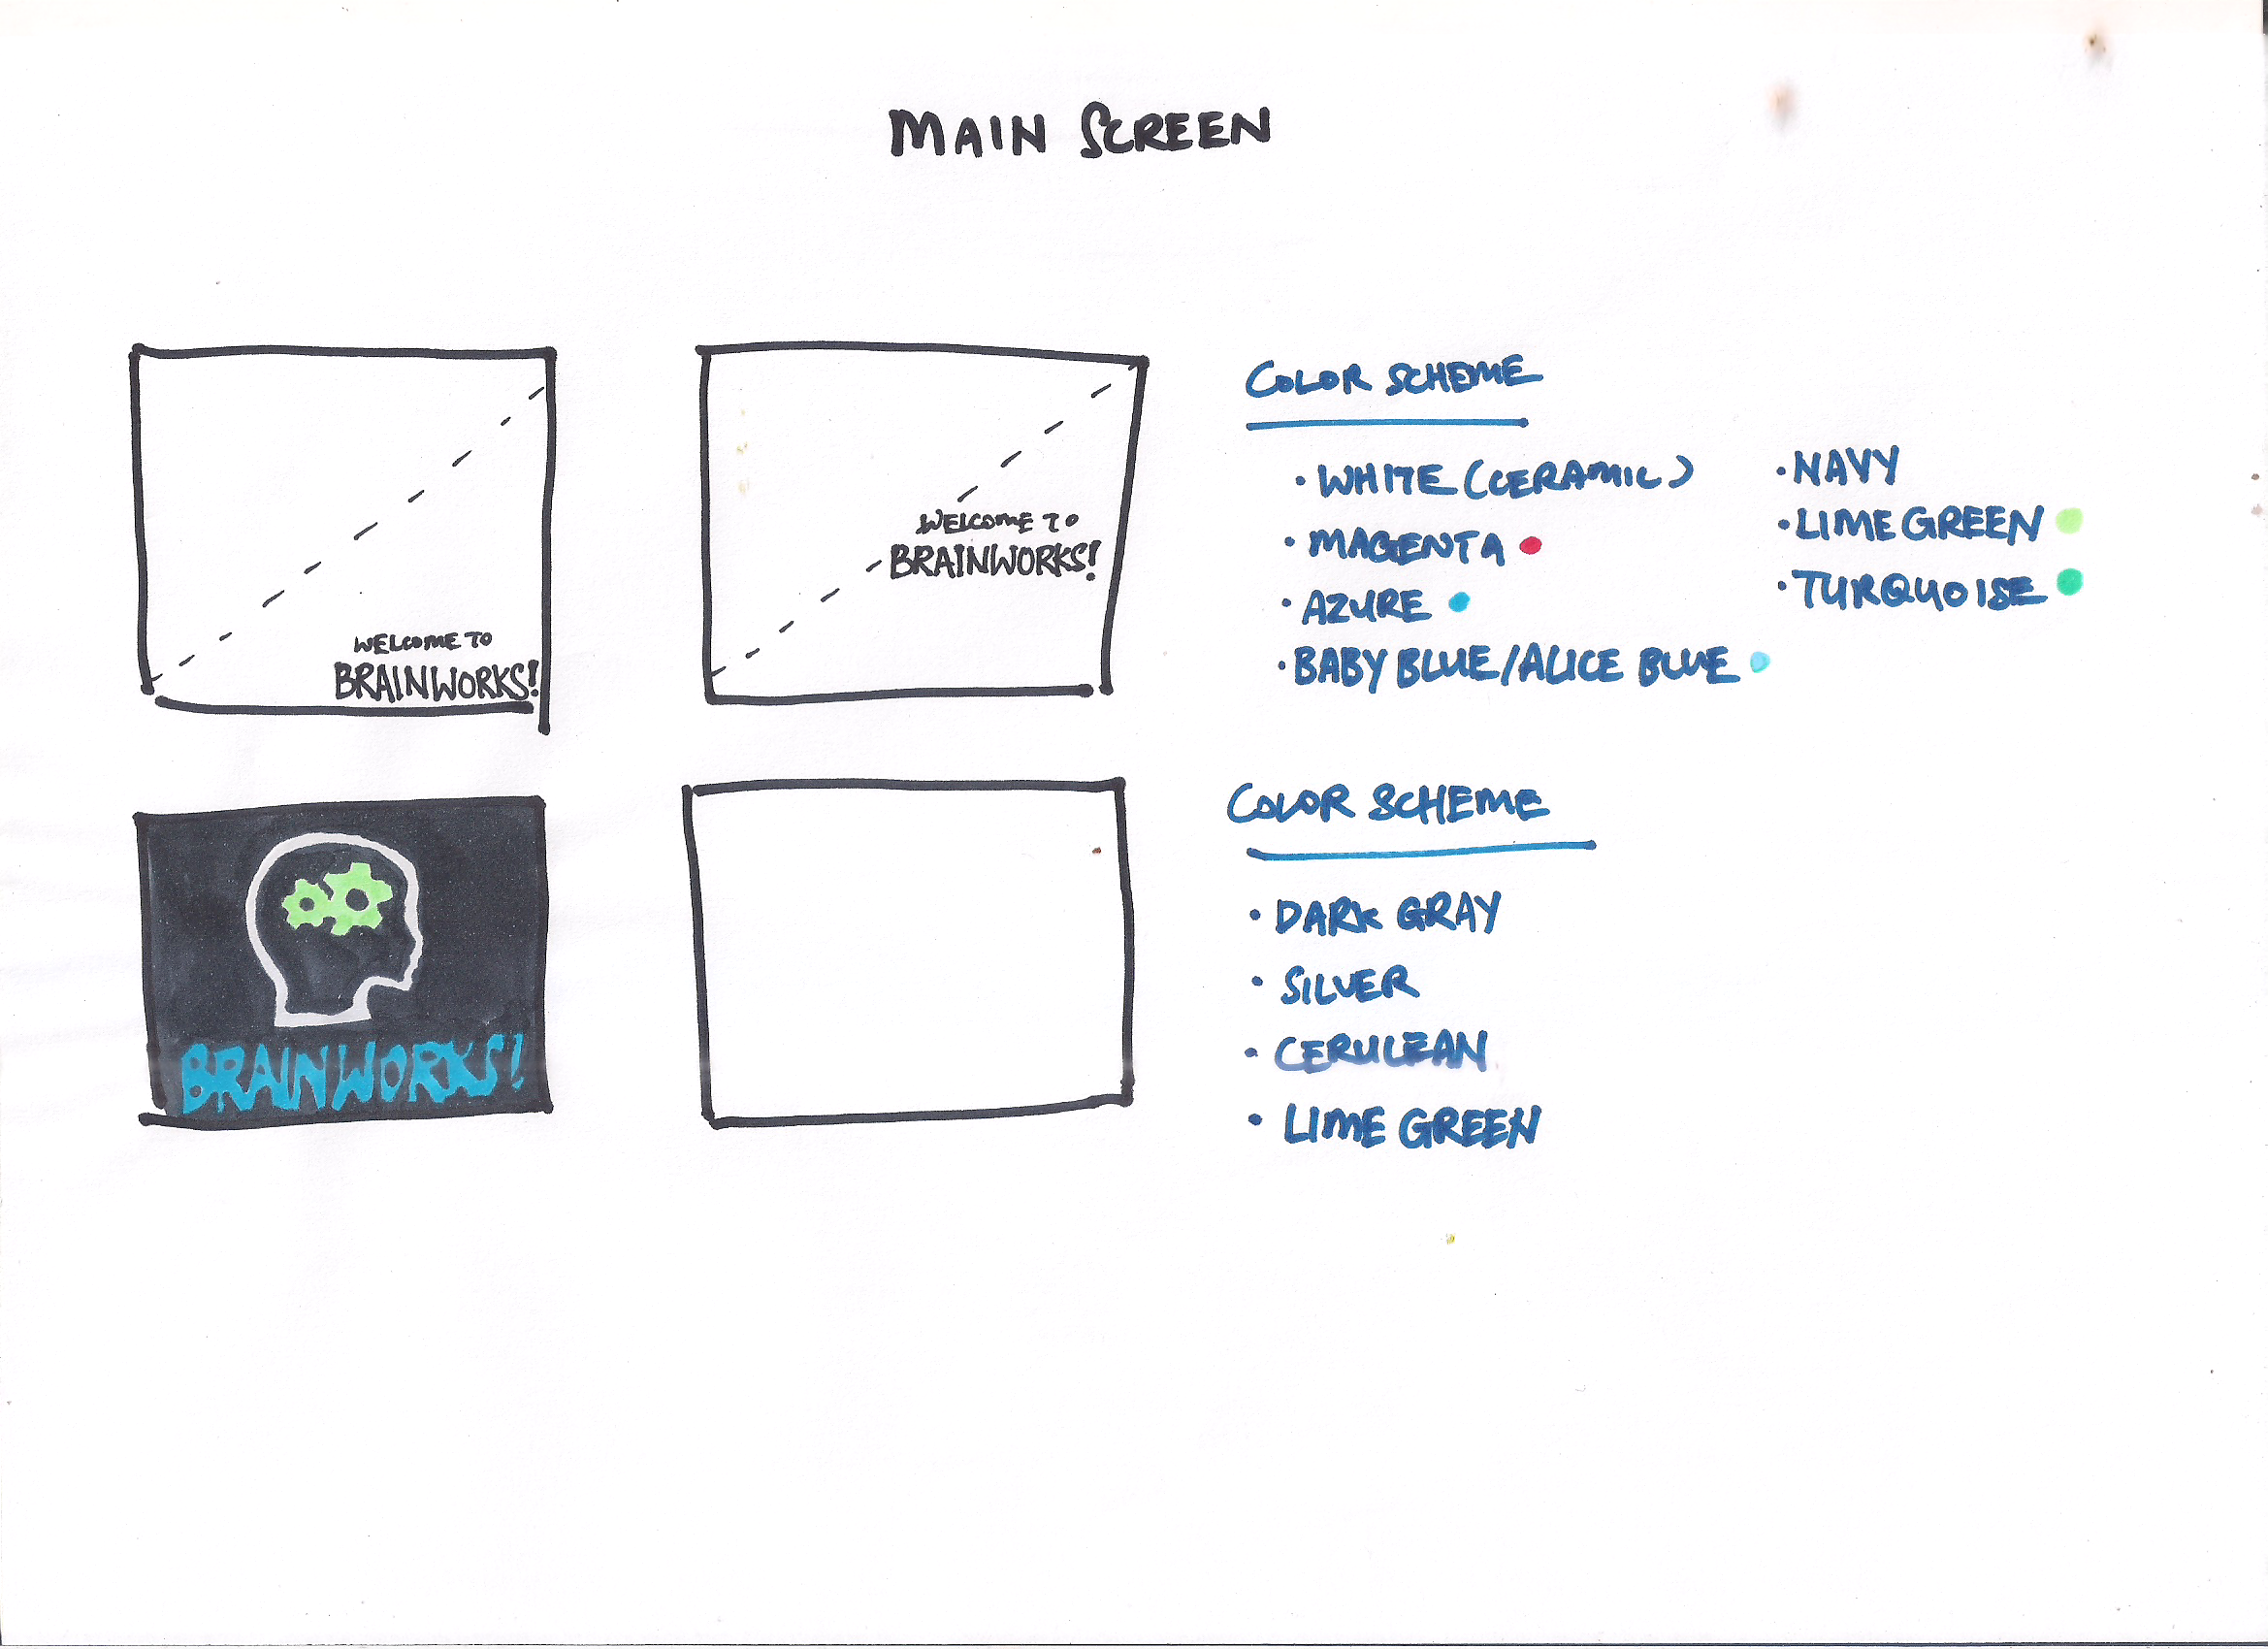 MAIN SCREEN
WELCOME TO
BRAINWORKS!
WELCOME TO
BRAINWORKS!
COLOR SCHEME
• WHITE (CERAMIC)
• MAGENTA
• AZURE
• BABY BLUE/ALICE BLUE
• NAVY
• LIME GREEN
• TURQUOISE
BRAINWORKS!
COLOR SCHEME
• DARK GRAY
• SILVER
• CERULEAN
• LIME GREEN